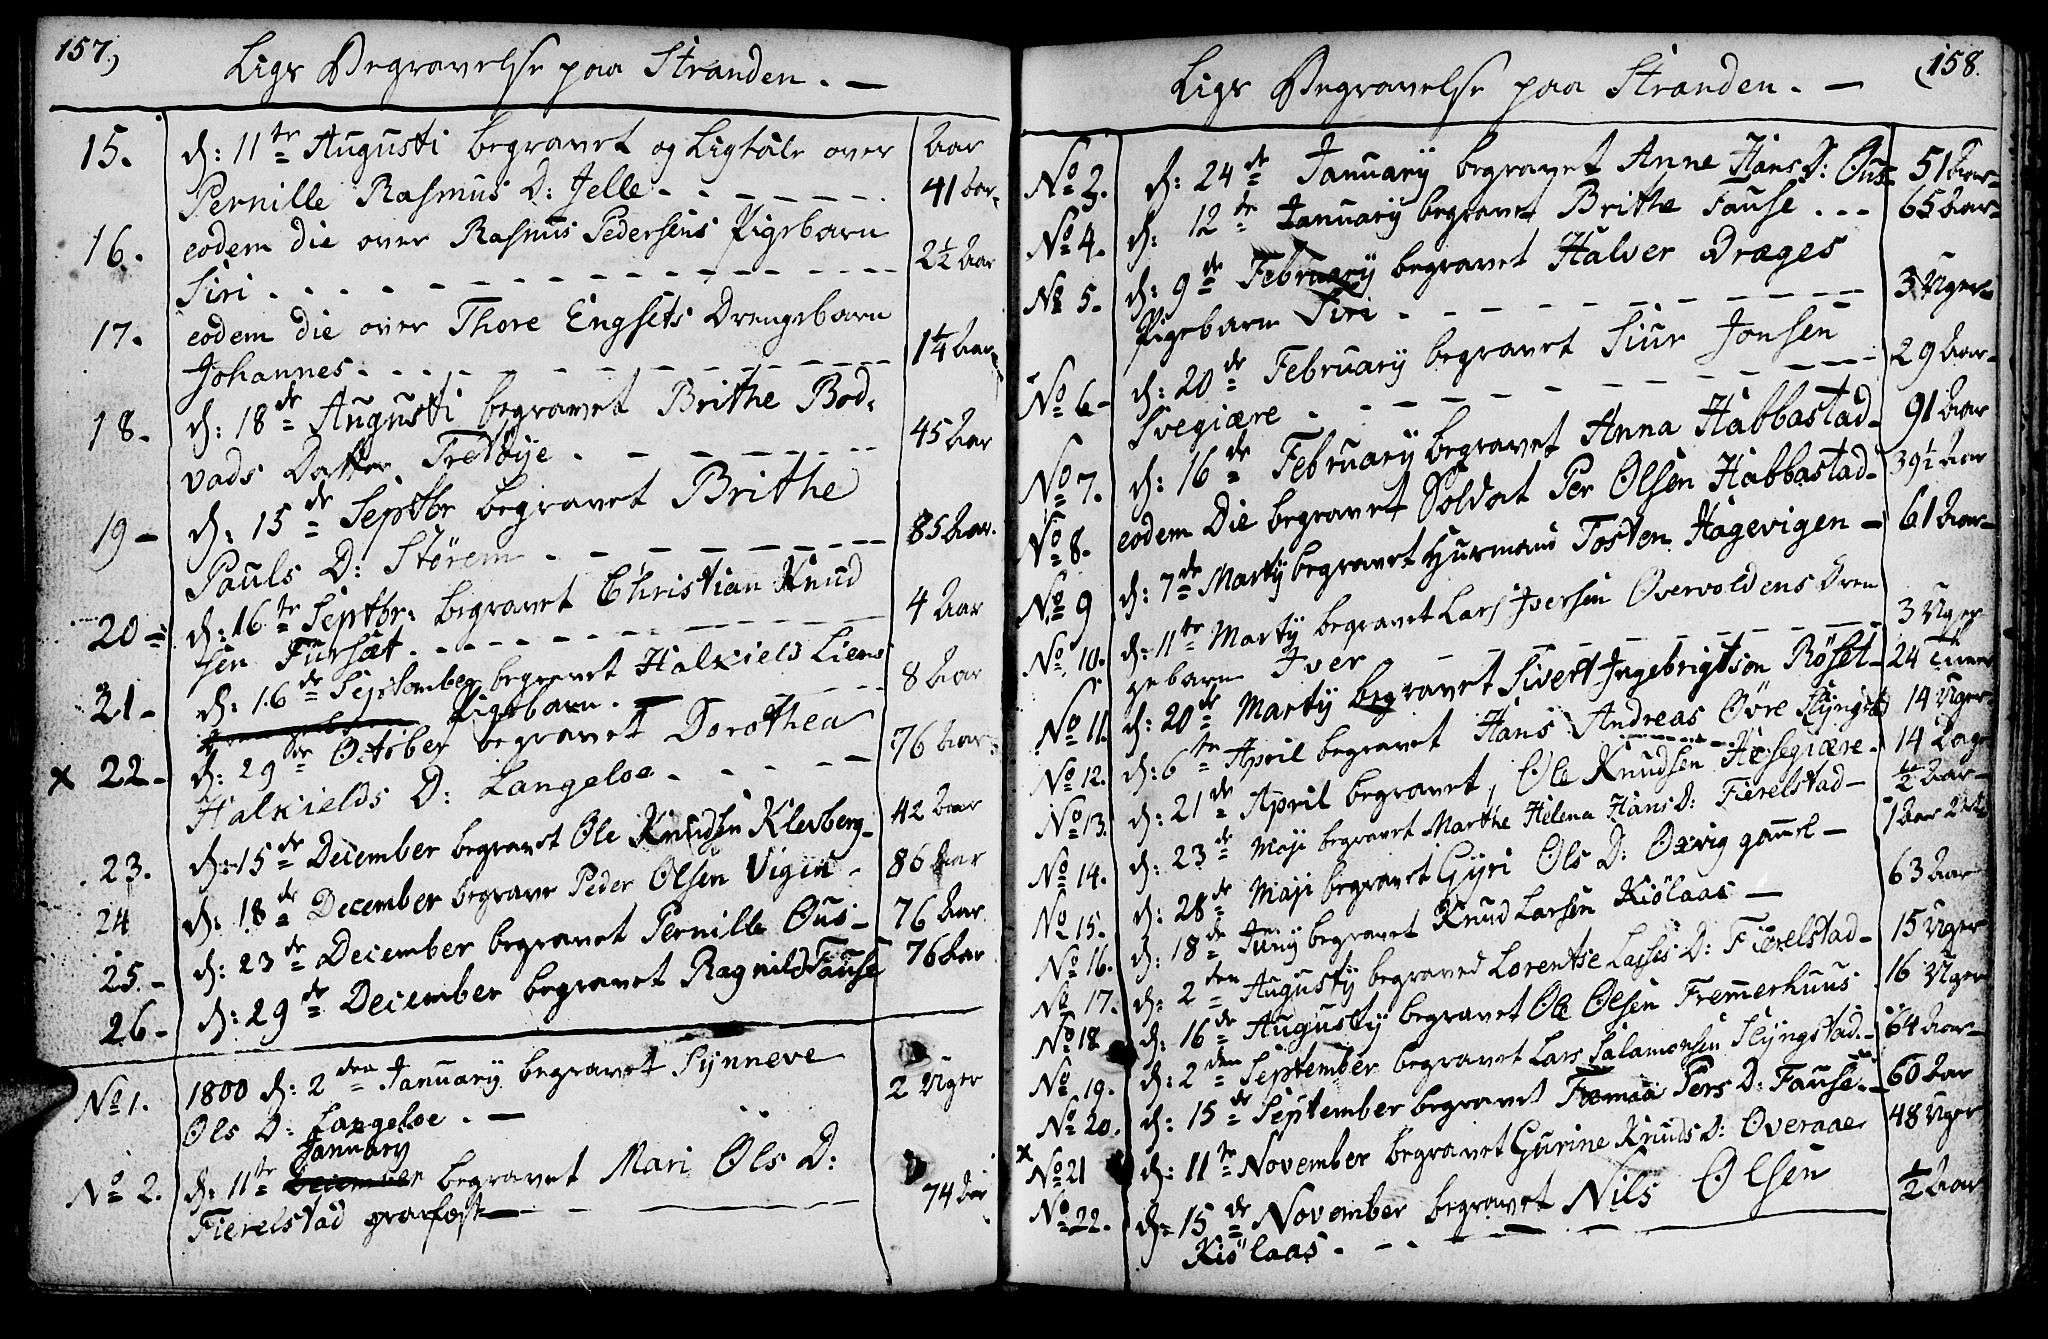 157.)
Ligs Begravelse paa Stranden. —
15. d: 11te Augusti begravet og Ligtale over Aar
Pernille Rasmus D: Jelle - - - - - 41 Aar
16. eodem die over Rasmus Pedersens Pigebarn
Siri - - - - 2½ Aar
17. eodem die over Thore Engsets Drengebarn
Johannes - - - - 1¼ Aar
18. d: 18de Augusti begravet Brithe Bod-
vads Datter Tretöye - - - - 45 Aar
19 - d: 15de Septbr begravet Brithe
Pauls D: Störem - - - - 85 Aar
20 - d: 16te Septbr: begravet Christian Knud
sen Fursæt - - - - 4 Aar
21 - d: 16de September begravet Halkield Liens
Pigebarn. — 8 Aar
x 22 - d: 29de October begravet Dorothea
Halkields D: Langeloe - - - - 76 Aar
23. d: 15de December begravet Ole Knudsen Klevberg - 42 Aar
24 d: 18de December begrave Peder Olsen Vigen - 86 Aar
25. - d: 23de December begravet Pernille Ous - 76 Aar
26 - d: 29de December begravet Ragnild Fause 76 Aar
No 1. 1800 d: 2den January begravet Synneve
Ols D: Langeloe. — 2 Uger
January
No 2. d: 11te December begravet Mari Ols D:
Fierelstad - - - 74 Aar
158.
Ligs Begravelse paa Stranden. —
No 3. d: 24de January begravet Anne Hans D: Ous - 51 Aar
No 4. d: 12te January begravet Brithe Fause - - - 65 Aar
No 5. d: 9de February begravet Halver Drages
Pigebarn Siri - - - - 3 Uger
No 6 - d: 20de February begravet Siur Jonsen
Svegiære - - - - 29 Aar
No 7. d: 16de February begravet Anna Habbastad - 91 Aar
No 8. eodem Die begravet Soldat Per Olsen Habbastad - 39½ Aar
No 9 d: 7de Marty begravet Huusmand Tosten Hagevigen - 61 Aar
No 10. d: 11te Marty begravet Lars Iversen Overvoldens Dren
gebarn Iver - - - - 3 Uger
No 11. d: 20de Marty begravet Sivert Ingebrigtson Röset - 24
No 12. d: 6te April begravet Hans Andreas Övre Slyngst 14 Uger
No 13. d: 21de April begravet, Ole Knudsen Hosegiære - 14 Dage
No 14. d: 23de Maji begravet Marthe Helena Hans D: Fierelstad - ½ Aar
No 15. d: 28de Maji begravet Gyri Ols D: Oxvig gaml - 1 Aar
No 16. d: 18de Juny begravet Knud Larsen Kiölaas — 63 Aar
No 17. d: 2den Augusty begraved Lorentse Lasses D: Fierelstad - 15 Uger
No 18 d: 16de Augusty begravet Ole Olsen Fremmerhuus 16 Uger
No 19. d: 2den September begravet Lars Salamonsen Slyngstad - 64 Aar
No 20. d: 15de September begravet Pers D: Fause - 60 Aar
x
No 21 d: 11te November begravet Gurine Knuds D: Overaae 48 Uger
No 22. d: 15de November begravet Nils Olsen
Kiölaas - - - - ½ Aar